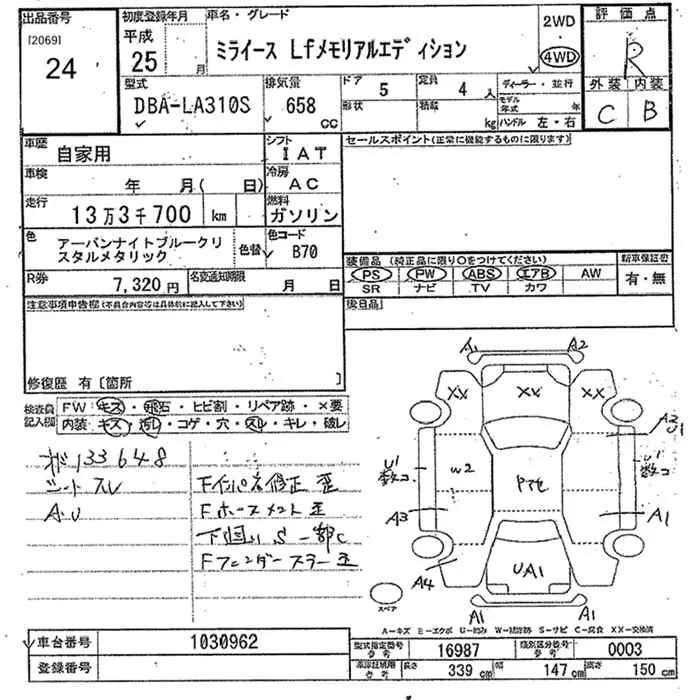 出品番号 初度登録年月 車名・グレード 2WD 評価点
[2069] 平成
24 25 月 ミライース Lfメモリアルエディション 4WD R
型式 排気量 ドア 5 定員 4 人 ディーラー・並行 外装 内装
DBA-LA310S 658 cc 形状 積載 kg モデル年式 年 C B
ハンドル 左・右
車歴 自家用 シフト IAT セールスポイント(正常に機能するものに限ります)
車検 年 月( 日) 冷房 AC
走行 13万3千700 km 燃料 ガソリン
色 アーバンナイトブルークリスタルメタリック 色替 色コード B70
装備品 (純正品に限り○をつけてください) 新車保証書
R券 7,320円 名変通知期限 月 日 PS PW ABS エアB AW 有・無
SR ナビ TV カワ
注意事項申告欄(不具合内容等は具体的に記入して下さい) 後日品
修復歴 有 [箇所 ]
検査員記入欄 FW キズ・飛石・ヒビ割・リペア跡・×要
内装 キズ・汚レ・コゲ・穴・スレ・キレ・破レ
133648
シートスレ
A.U
Fインパネ修正 歪
Fホースメント歪
下回り S 一部C
Fフェンダーステー歪
A1 A2
XX XX XX
A2
U1
U1 数コ W2 Pアセ U1 数コ
A3 A1
A4 UA1
スペア A1 A1
A-キズ E-エクボ U-凹み W-補修跡 S-サビ C-腐食 XX-交換済
車台番号 1030962 型式指定番号 参考 16987 類別区分番号 参考 0003
登録番号 車庫証明用 参考 長さ 339 cm 幅 147 cm 高さ 150 cm